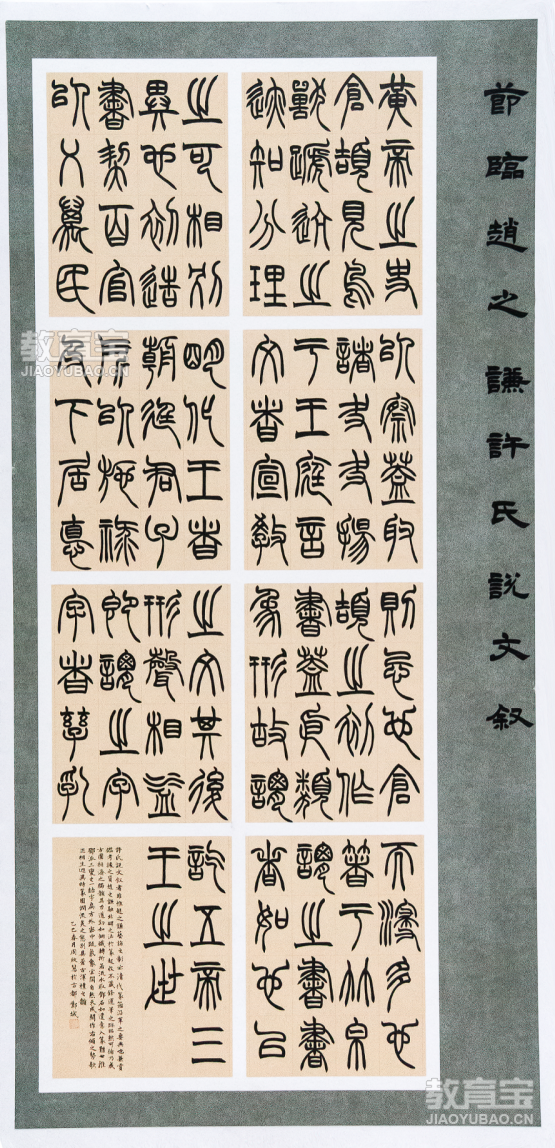 節臨趙之謙許氏說文叙
黃帝之史
倉頡見鳥
獸蹏迒之
迹知分理
之可相別
異也初造
書契百官
以乂萬民
以察蓋取
諸夬夬揚
于王庭言
文者宣教
明化王者
朝廷君子
所以施祿
及下居德
則忌也倉
頡之初作
書蓋依類
象形故謂
之文其後
形聲相益
即謂之字
字者孳乳
而浸多也
著于竹帛
謂之書書
者如也以
訖五帝三
王之世
教育宝
JIAOYUBAO.CN
教育宝
JIAOYUBAO.CN